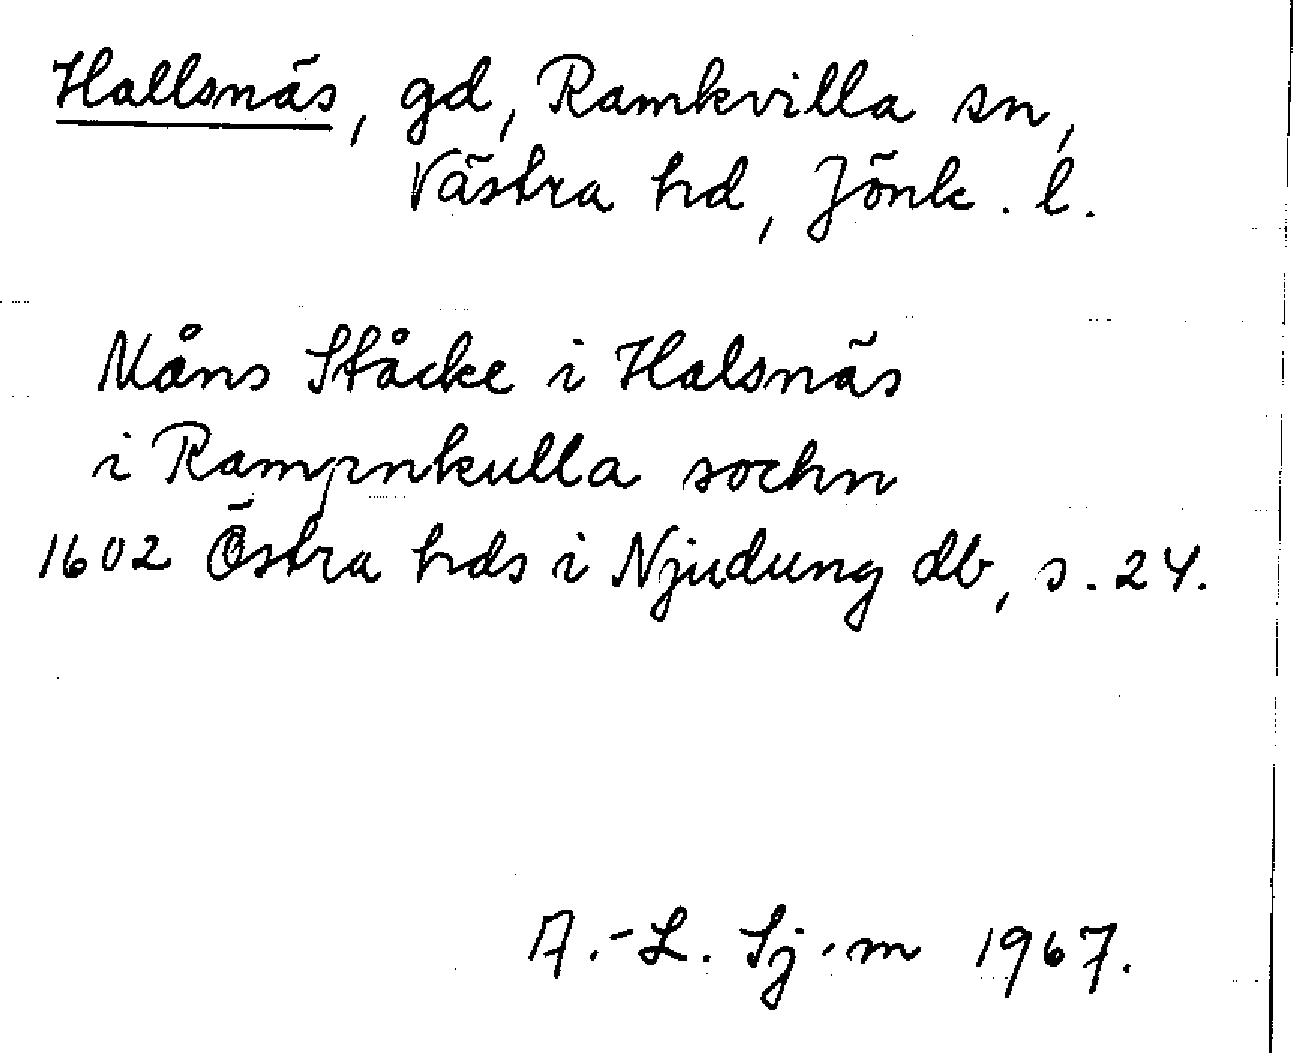 Hallsnäs, gd, Ramkvilla sn,
Västra hd, Jönk. l.
Måns Ståcke i Halsnäs
i Rampnkulla sochn
1602 Östra hds i Njudung db, s. 24.
A.-L. Sj.m 1967.